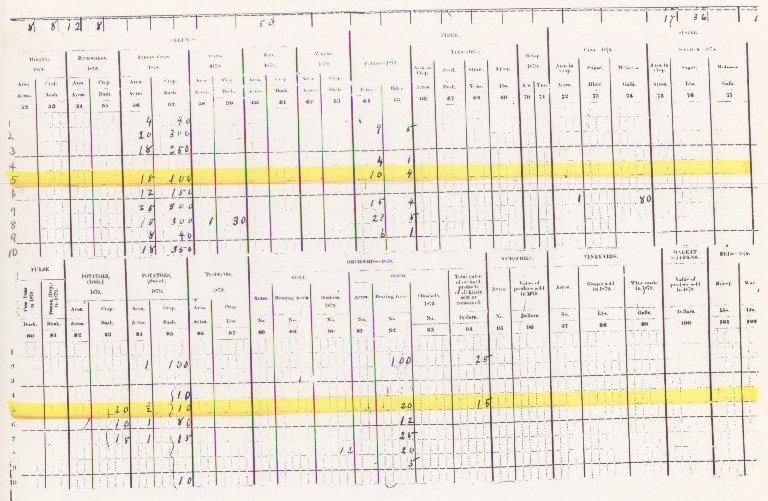 8 8 12 8 50 17 36
CEREALS. FIBER. SUGAR
BARLEY, BUCKWHEAT, INDIAN CORN, OATS, RYE, WHEAT, COTTON—1879. FLAX—1879. HEMP, CANE, 1879. SORGHUM, 1879.
1879. 1879. 1879. 1879. 1879. 1879. 1879.
Area. Crop. Area. Crop. Area. Crop. Area. Crop. Area. Crop. Area. Crop. Area in Crop. Seed. Straw. Fiber. Area in crop. Sugar. Molasses. Area in crop. Sugar. Molasses.
Acres. Bush. Acres. Bush. Acres. Bush. Acres. Bush. Acres. Bush. Acres. Bush. Acres. Bales. Acres. Bush. Tons. Lbs. Acres. Tons. Acres. Hhds. Galls. Acres. Lbs. Galls.
52 53 54 55 56 57 58 59 60 61 62 63 64 65 66 67 68 69 70 71 72 73 74 75 76 77
1 4 40
2 20 300 9 5
3 18 250
4 4 1
5 15 100 10 4
6 12 150
7 25 300 15 4 1 80
8 15 300 1 30 23 5
9 8 40 6 1
10 18 350
PULSE ORCHARDS—1879. NURSERIES. VINEYARDS. MARKET GARDENS. BEES—1879.
Cow Peas in 1879. Beans, (Dry) in 1879. POTATOES, (Irish.) POTATOES, (Sweet.) TOBACCO, APPLE. PEACH. Total value of orchard products of all kinds sold or consumed.
1879. 1879. 1879. Acres. Bearing trees. Bushels, 1879. Acres. Bearing trees. Bushels, 1879. Acres. Value of produce sold in 1879. Acres. Grapes sold in 1879. Wine made in 1879. Value of produce sold in 1879. Honey. Wax
Area. Crop. Area. Crop. Area. Crop.
Bush. Bush. Acres. Bush. Acres. Bush. Acres. Lbs. No. No. No. No. No. No. Dollars. No. Dollars. No. Lbs. Galls. Dollars. Lbs. Lbs.
80 81 82 83 84 85 86 87 88 89 90 91 92 93 94 95 96 97 98 99 100 101
1
2 1 100 100 25
3
4 10
5 20 ½ 10 20 15
6 10 1 80 12
7 15 1 15 25
8 12 20
9 5
10 10